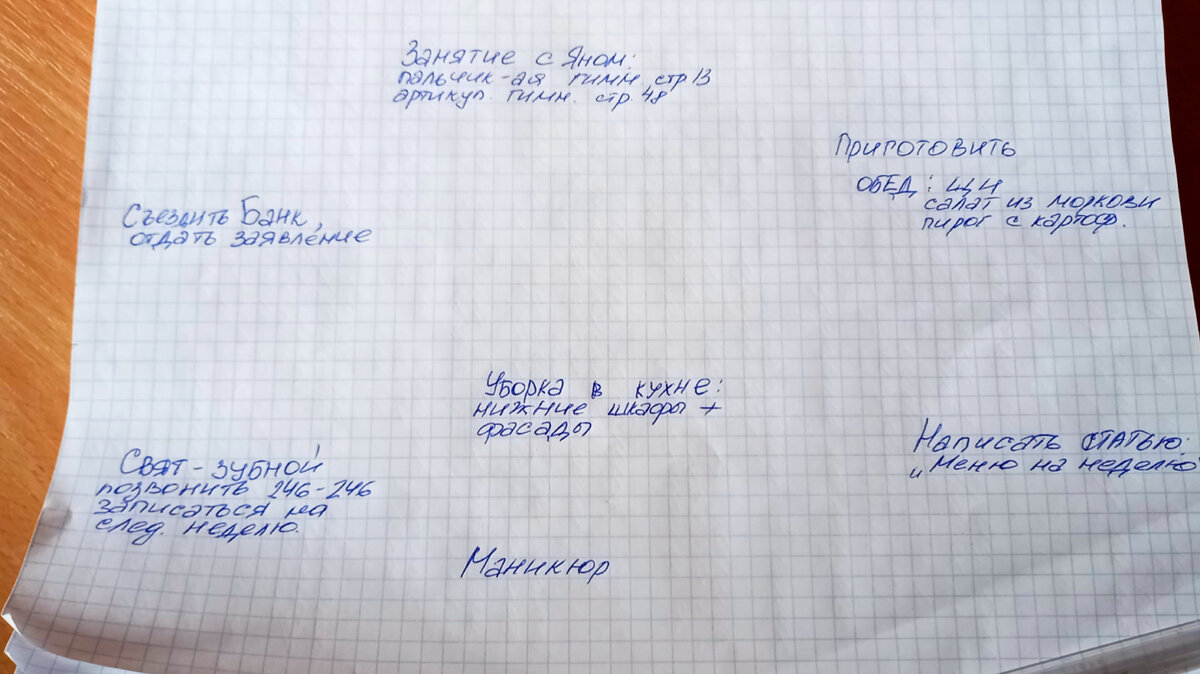 Занятие с Яном:
пальчик-ая гимн. стр 13
артикул. гимн. стр. 48
Приготовить
ОБЕД: щи
салат из моркови
пирог с картоф.
Съездить Банк,
отдать заявление
Уборка в кухне:
нижние шкафы +
фасады
Написать статью:
„Меню на неделю"
Свят - зубной
позвонить 246-246
записаться на
след. неделю.
Маникюр